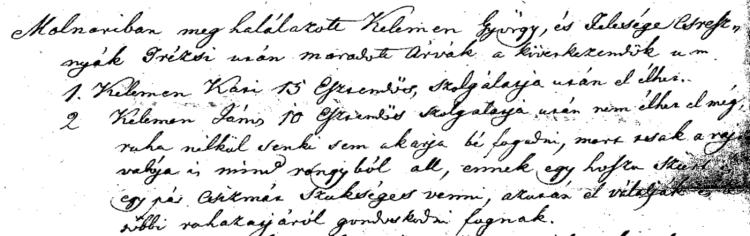 Molnariban meg halálozott Kelemen György, és Felesége Cseresz„
nyák Trézsi után maradott Árvák a következendők u. m.
1. Kelemen Kári 15 Esztendős, szolgálatja után el élhet.
2 Kelemen János 10 Esztendős szolgálatja után nem élhet el még,
ruha nélkül senki sem akarja bé fogadni, mert csak a raj
valója is mind rongyból áll, ennek egy hosszu Szűrt
egy pár Csizmát Szükséges venni, azután el vállalják és a
többi ruházatjáról gondoskodni fognak.